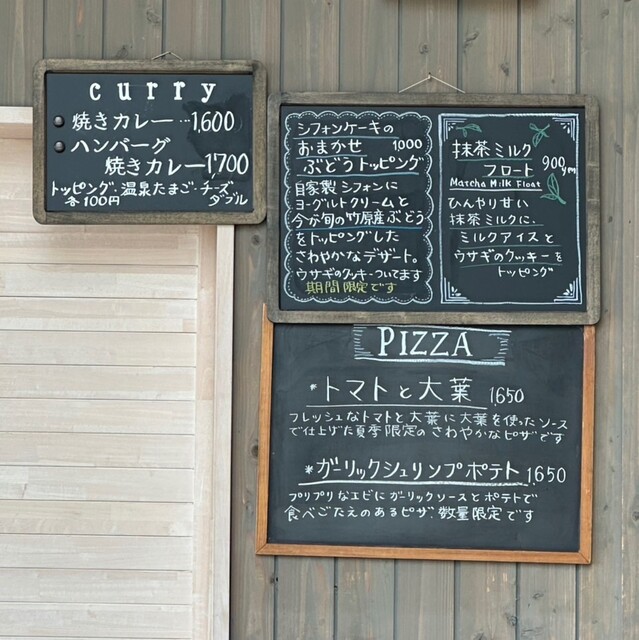 curry
焼きカレー…1,600
ハンバーグ
焼きカレー 1,700
トッピング、温泉たまご・チーズ、
各100円 ダブル
シフォンケーキの
おまかせ 1,000
ぶどうトッピング
自家製シフォンに
ヨーグルトクリームと
今が旬の竹原産ぶどう
をトッピングした
さわやかなデザート。
ウサギのクッキーついてます
期間限定です
抹茶ミルク
フロート 900yen
Matcha Milk Float
ひんやり甘い
抹茶ミルクに、
ミルクアイスと
ウサギのクッキーを
トッピング
PIZZA
*トマトと大葉 1650
フレッシュなトマトと大葉に大葉を使ったソース
で仕上げた夏季限定のさわやかなピザです
*ガーリックシュリンプポテト 1,650
プリプリなエビにガーリックソースとポテトで
食べごたえのあるピザ、数量限定です